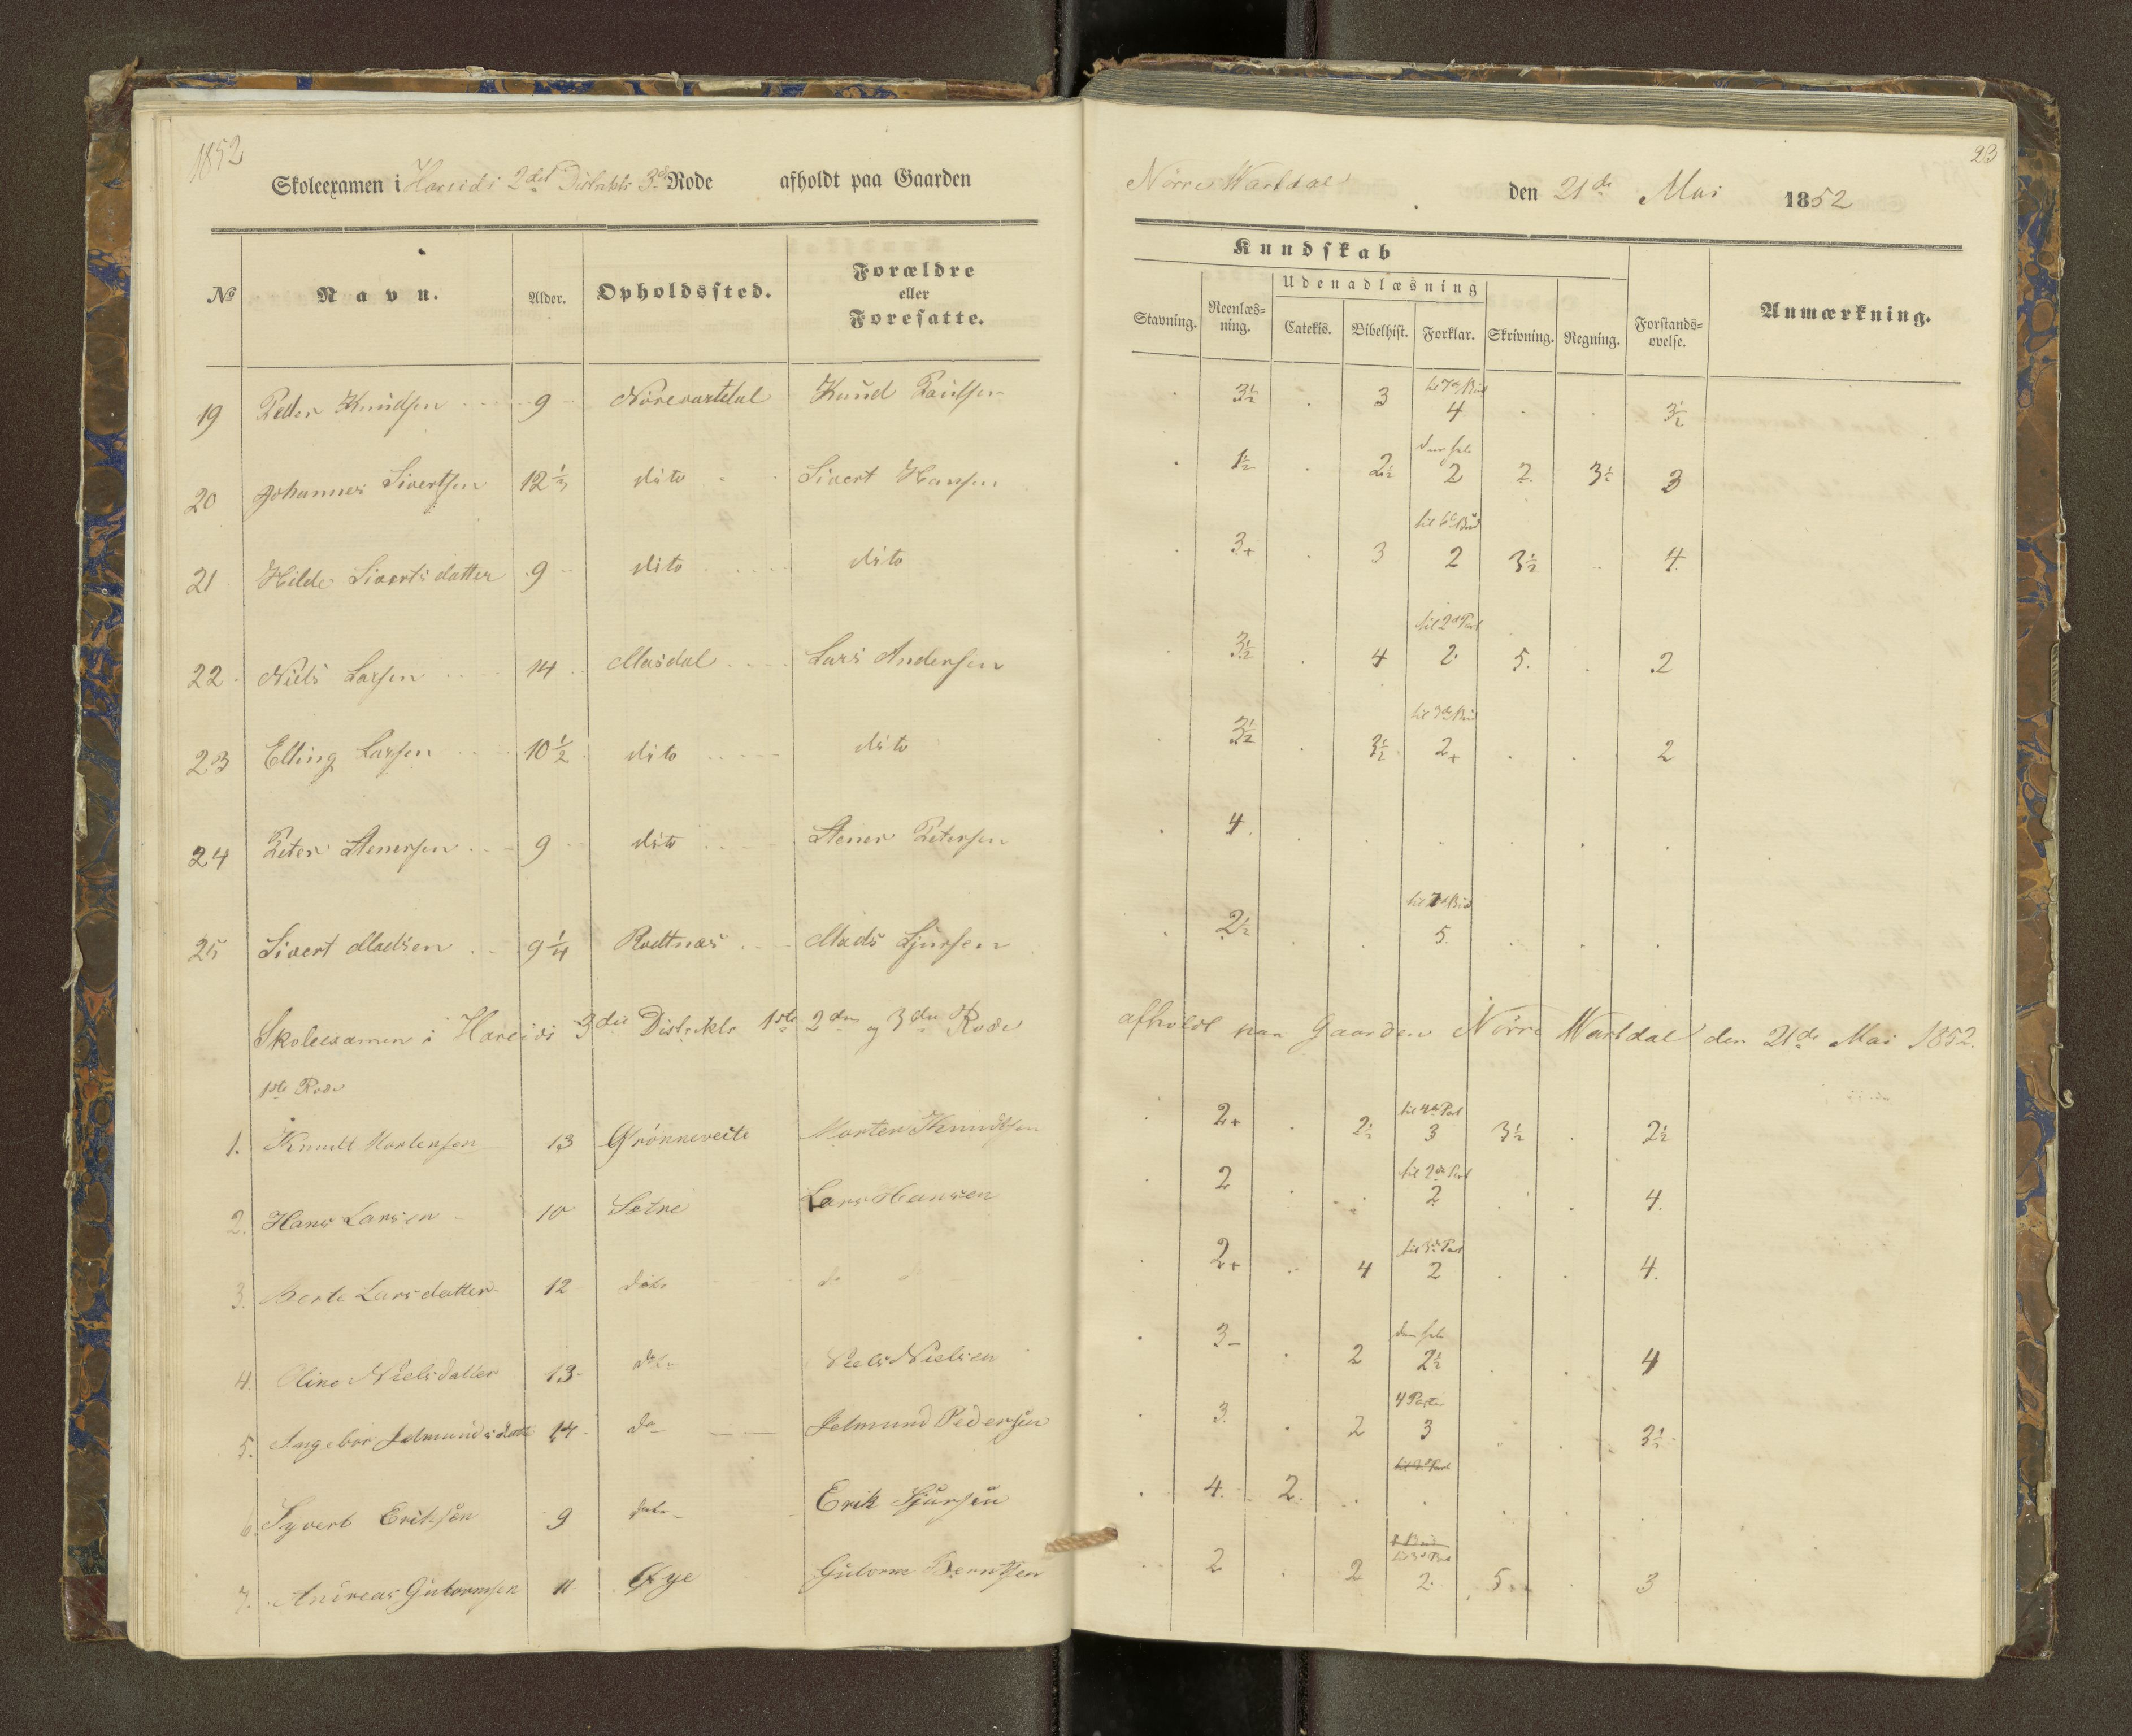 1852
23
Skoleexamen i Hareids 2det Distrikts 3de Rode afholdt paa Gaarden Nörre Wartdal den 21de Mai 1852
Kundskab
Udenadlæsning
№ Navn. Alder. Opholdssted. Forældre eller Foresatte. Stavning. Reenlæs=ning. Catekis. Bibelhist. Forklar. Skrivning. Regning. Forstands=øvelse. Anmærkning.
til 7de Bud
19 Petter Knudsen 9 Nörevartdal Knud Paulsen 3½ 3 4 3½
den hele
20 Johannes Sivertsen 12½ dito Sivert Hansen 1½ 2½ 2 2. 3½ 3
til 6te Bud
21 Hilde Sivertsdatter 9 dito dito 3+ 3 2 3½ 4.
til 2d Part
22 Niels Larsen 14 Masdal Lars Andersen 3½ 4 2. 5. 2
til 3de Bud
23 Elling Larsen 10½ dito dito 3½ 3½ 2+ 2
24 Peter Stenersen 9 dito Stener Petersen 4
25 Sivert Madsen 9¼ Rodtnæs Mads Sjursen 2½ 5.
Skoleexamen i Hareids 3die Distrikts 1ste 2den og 3die Rode afholdt paa Gaarden Nörre Wartdal den 21de Mai 1852.
1ste Rode
til 4de Part
1. Knudt Mortensen 13 Grönneveite Morten Knudtsen 2+ 2½ 3 3½ 2½
til 2de Part
2. Hans Larsen 10 Sætre Lars Hansen 2 2 4.
til 3de Part
3. Berte Larsdatter 12 dito do do 2+ 4 2 4.
den hele
4. Oline Nielsdatter 13 dito Niels Nielsen 3- 2 2½ 4
4 Parte
5. Ingebor Jetmundsdatter 14 do Jetmund Pedersen 3. 2 3 3½
6. Syvert Eriksen 9 dito Erik Sjursen 4. 2.
7. Andreas Gutormsen 11 Øye Gutorm Berntsen 2 2 2. 5 3